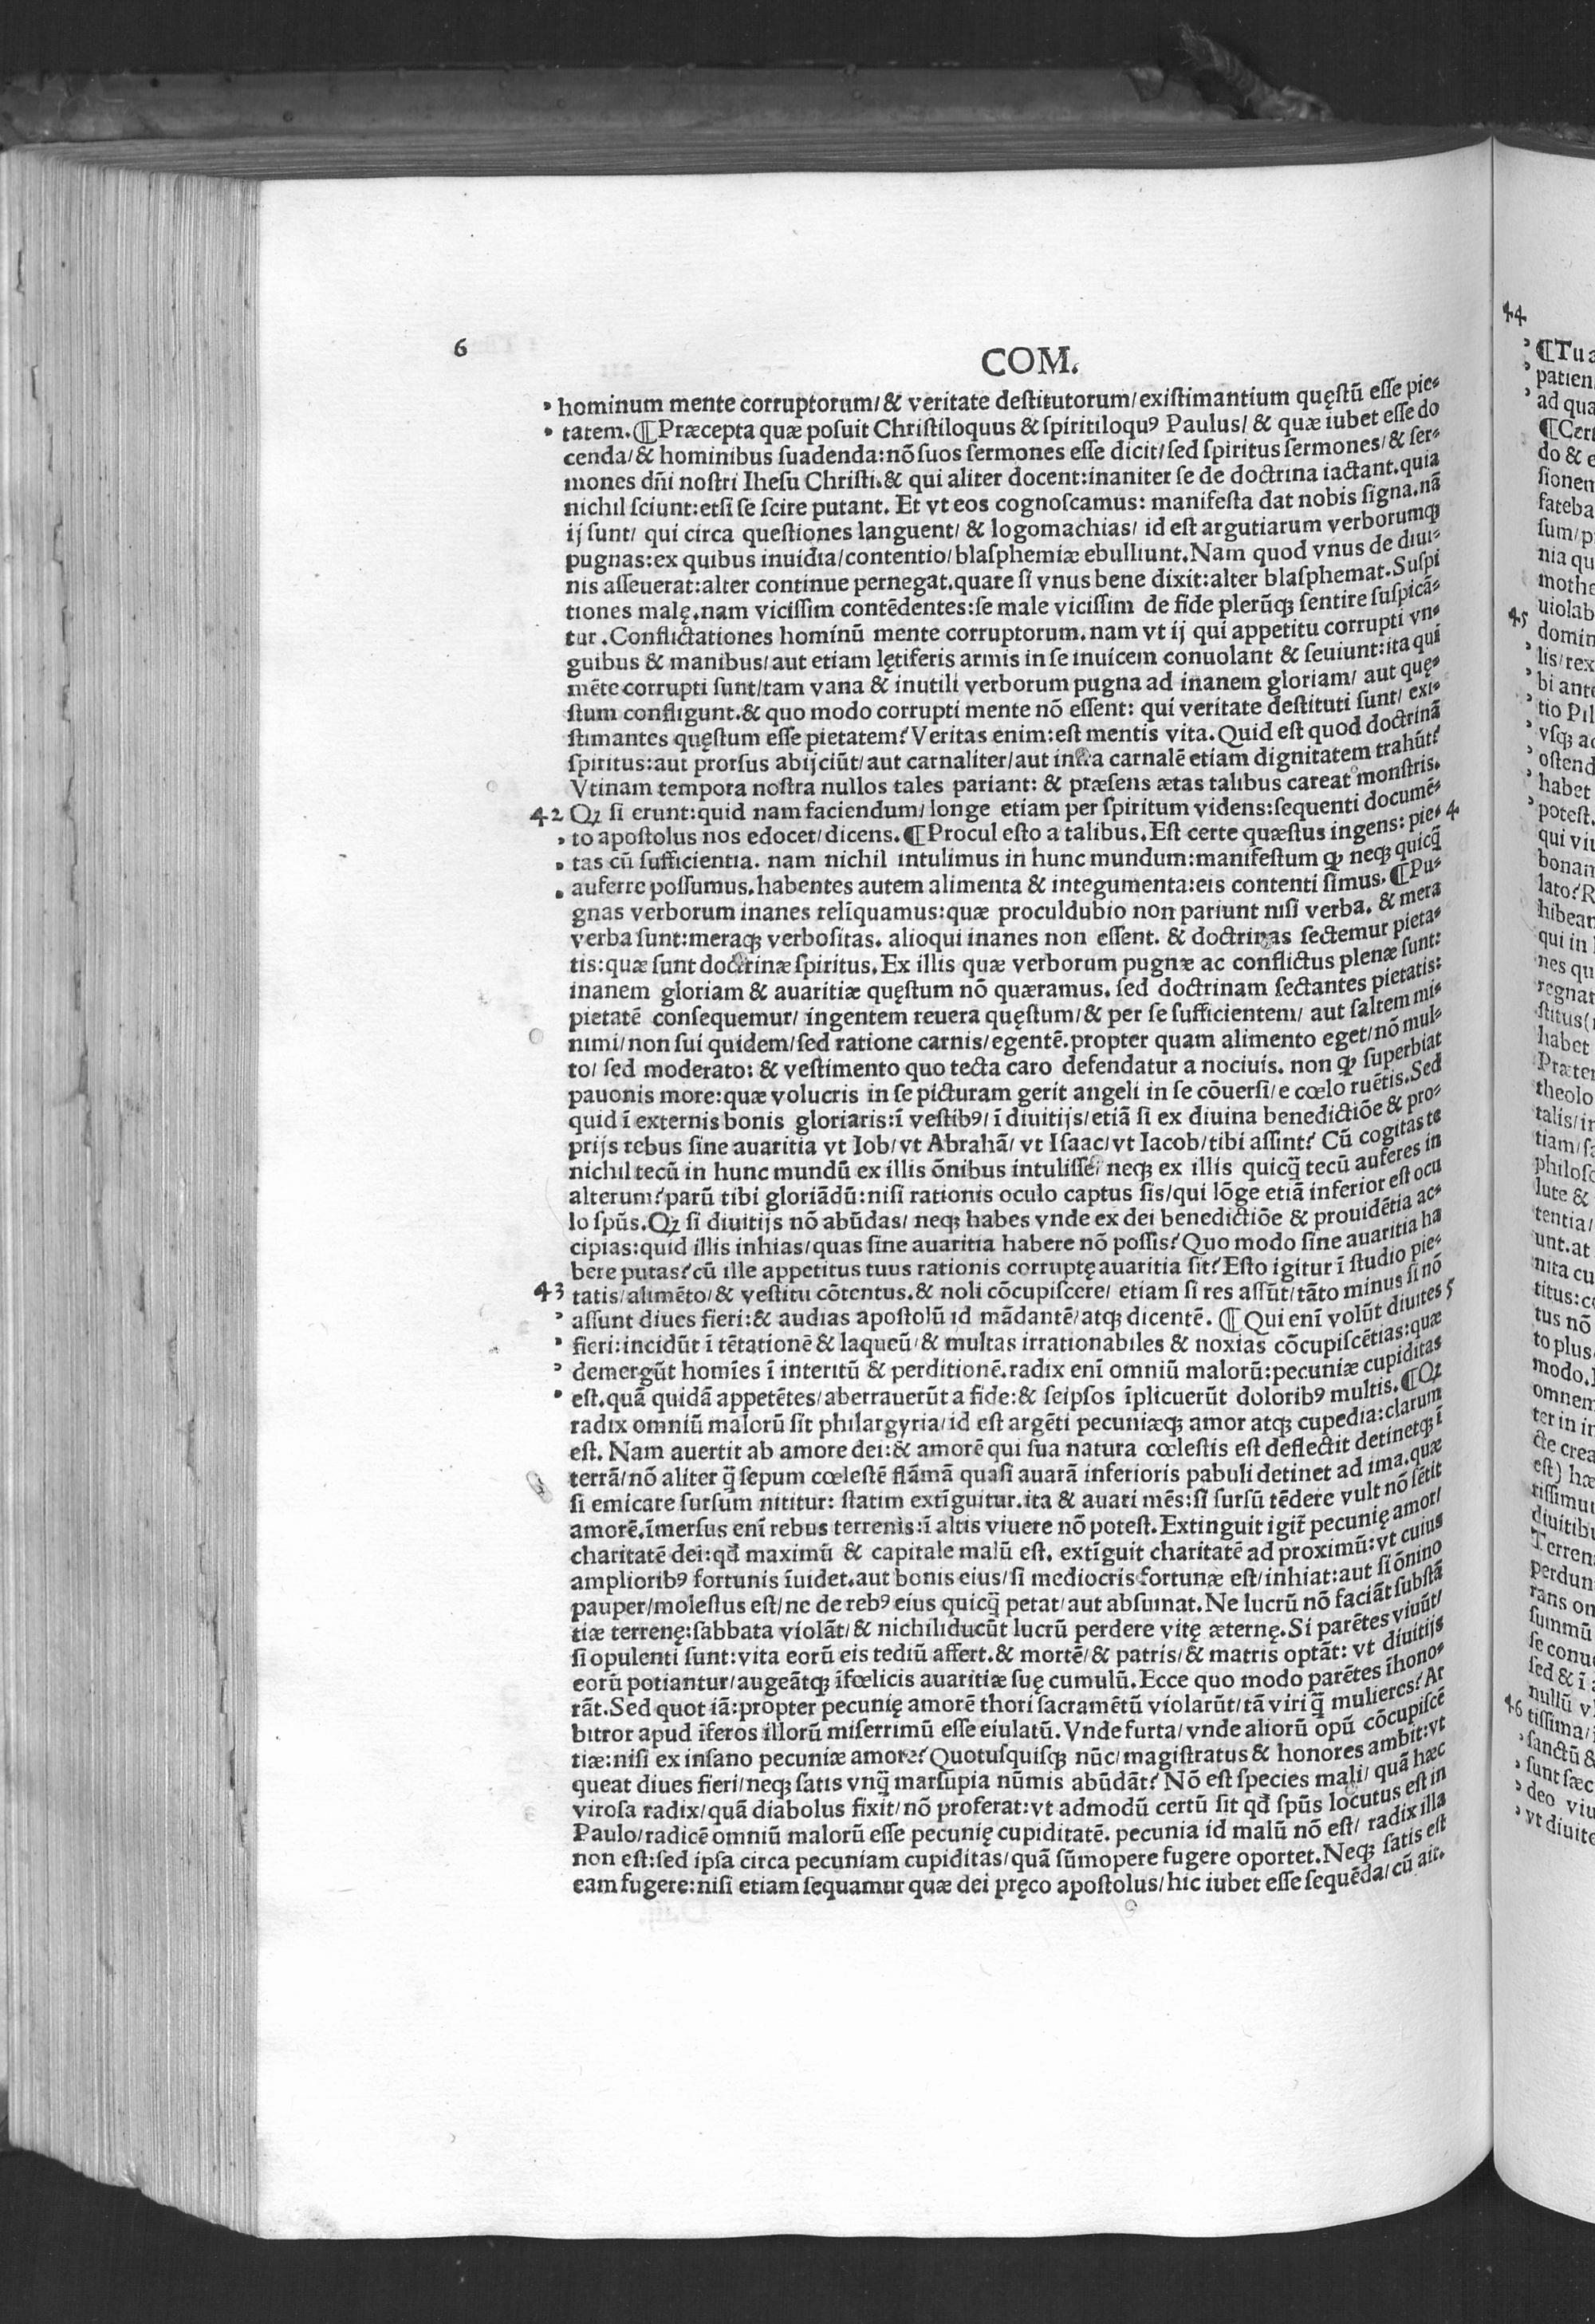 6
COM.
hominum mente corruptorum/& veritate deſtitutorum/exiſtimantium quęſtū eſſe pie⸗
tatem.¶Præcepta quæ poſuit Chriſtiloquus & ſpiritiloquꝰ Paulus/ & quæ iubet eſſe do
cenda/& hominibus ſuadenda:nō ſuos ſermones eſſe dicit/ſed ſpiritus ſermones/& ſer⸗
mones dn̄i noſtri Iheſu Chriſti.& qui aliter docent:inaniter ſe de doctrina iactant.quia
nichil ſciunt:etſi ſe ſcire putant. Et vt eos cognoſcamus: manifeſta dat nobis ſigna.nā
ij ſunt/ qui circa queſtiones languent/ & logomachias/ id eſt argutiarum verborumqꝫ
pugnas:ex quibus inuidia/contentio/blaſphemiæ ebulliunt.Nam quod vnus de diui⸗
nis aſſeuerat:alter continue pernegat.quare ſi vnus bene dixit:alter blaſphemat.Suſpi
tiones malę.nam viciſſim contēdentes:ſe male viciſſim de fide plerūqꝫ ſentire ſuſpicā⸗
tur.Conflictationes hominū mente corruptorum.nam vt ij qui appetitu corrupti vn⸗
guibus & manibus/aut etiam lętiferis armis in ſe inuicem conuolant & ſeuiunt:ita qui
mēte corrupti ſunt/tam vana & inutili verborum pugna ad inanem gloriam/ aut quę⸗
ſtum confligunt.& quo modo corrupti mente nō eſſent: qui veritate deſtituti ſunt/ exi⸗
ſtimantes quęſtum eſſe pietatem? Veritas enim:eſt mentis vita.Quid eſt quod doctrinā
ſpiritus:aut prorſus abijciūt/aut carnaliter/aut infra carnalē etiam dignitatem trahūt?
Vtinam tempora noſtra nullos tales pariant: & præſens ætas talibus careat monſtris.
42 Qꝫ ſi erunt:quid nam faciendum/longe etiam per ſpiritum videns:ſequenti documē⸗
to apoſtolus nos edocet/dicens.¶Procul eſto a talibus.Eſt certe quæſtus ingens: pie⸗ 4
tas cū ſufficientia. nam nichil intulimus in hunc mundum:manifeſtum ꝙ neqꝫ quicq̄
auferre poſſumus.habentes autem alimenta & integumenta:eis contenti ſimus.¶Pu⸗
gnas verborum inanes relīquamus:quæ proculdubio non pariunt niſi verba. & mera
verba ſunt:meraqꝫ verboſitas. alioqui inanes non eſſent. & doctrinas ſectemur pieta⸗
tis:quæ ſunt doctrinæ ſpiritus.Ex illis quæ verborum pugnæ ac conflictus plenæ ſunt:
inanem gloriam & auaritiæ quęſtum nō quæramus. ſed doctrinam ſectantes pietatis:
pietatē conſequemur/ ingentem reuera quęſtum/& per ſe ſufficientem/ aut ſaltem mi⸗
nimi/non ſui quidem/ſed ratione carnis/egentē.propter quam alimento eget/nō mul⸗
to/ ſed moderato: & veſtimento quo tecta caro defendatur a nociuis. non ꝙ ſuperbiat
pauonis more:quæ volucris in ſe picturam gerit angeli in ſe cōuerſi/e cœlo ruētis.Sed
quid ī externis bonis gloriaris:ī veſtibꝰ/ī diuitijs/etiā ſi ex diuina benedictiōe & pro⸗
prijs rebus ſine auaritia vt Iob/vt Abrahā/ vt Iſaac/vt Iacob/tibi aſſint? Cū cogitas te
nichil tecū in hunc mundū ex illis ōnibus intuliſſe/ neqꝫ ex illis quicq̄ tecū auferes in
alterum?parū tibi gloriādū:niſi rationis oculo captus ſis/qui lōge etiā inferior eſt ocu
lo ſpūs.Qꝫ ſi diuitijs nō abūdas/ neqꝫ habes vnde ex dei benedictiōe & prouidētia ac⸗
cipias:quid illis inhias/quas ſine auaritia habere nō poſſis? Quo modo ſine auaritia ha
bere putas?cū ille appetitus tuus rationis corruptę auaritia ſit? Eſto igitur ī ſtudio pie⸗
43 tatis/alimēto/& veſtitu cōtentus.& noli cōcupiſcere/ etiam ſi res aſſūt/tāto minus ſi nō
aſſunt diues fieri:& audias apoſtolū id mādantē/atqꝫ dicentē. ¶Qui enī volūt diuites 5
fieri:incidūt ī tētationē & laqueū/& multas irrationabiles & noxias cōcupiſcētias:quæ
demergūt homīes ī interitū & perditionē.radix enī omniū malorū:pecuniæ cupiditas
eſt.quā quidā appetētes/aberrauerūt a fide:& ſeipſos īplicuerūt doloribꝰ multis.¶Qꝫ
radix omniū malorū ſit philargyria/id eſt argēti pecuniæqꝫ amor atqꝫ cupedia:clarum
eſt. Nam auertit ab amore dei:& amorē qui ſua natura cœleſtis eſt deflectit detinetqꝫ ī
terrā/nō aliter q̄ ſepum cœleſtē flāmā quaſi auarā inferioris pabuli detinet ad ima.quæ
ſi emicare ſurſum nititur: ſtatim extīguitur.ita & auari mēs:ſi ſurſū tēdere vult nō ſētit
amorē.īmerſus enī rebus terrenis:ī altis viuere nō poteſt.Extinguit igit̄ pecunię amor/
charitatē dei:qđ maximū & capitale malū eſt. extīguit charitatē ad proximū:vt cuius
amplioribꝰ fortunis īuidet.aut bonis eius/ſi mediocris fortunæ eſt/inhiat:aut ſi ōnino
pauper/moleſtus eſt/ne de rebꝰ eius quicq̄ petat/aut abſumat.Ne lucrū nō faciāt ſubſtā
tiæ terrenę:ſabbata violāt/& nichiliducūt lucrū perdere vitę æternę.Si parētes viuūt/
ſi opulenti ſunt:vita eorū eis tediū affert.& mortē/& patris/& matris optāt: vt diuitijs
eorū potiantur/augeātqꝫ īfœlicis auaritiæ ſuę cumulū.Ecce quo modo parētes īhono⸗
rāt.Sed quot iā:propter pecunię amorē thori ſacramētū violarūt/tā viri q̄ mulieres? Ar
bitror apud īferos illorū miſerrimū eſſe eiulatū.Vnde furta/vnde aliorū opū cōcupiſcē
tiæ:niſi ex inſano pecuniæ amore? Quotuſquiſqꝫ nūc/magiſtratus & honores ambit:vt
queat diues fieri/neqꝫ ſatis vnq̄ marſupia nūmis abūdāt? Nō eſt ſpecies mali/ quā hæc
viroſa radix/quā diabolus fixit/nō proferat:vt admodū certū ſit qđ ſpūs locutus eſt in
Paulo/radicē omniū malorū eſſe pecunię cupiditatē. pecunia id malū nō eſt/ radix illa
non eſt:ſed ipſa circa pecuniam cupiditas/quā ſūmopere fugere oportet.Neqꝫ ſatis eſt
eam fugere:niſi etiam ſequamur quæ dei pręco apoſtolus/hic iubet eſſe ſequēda/cū ait.